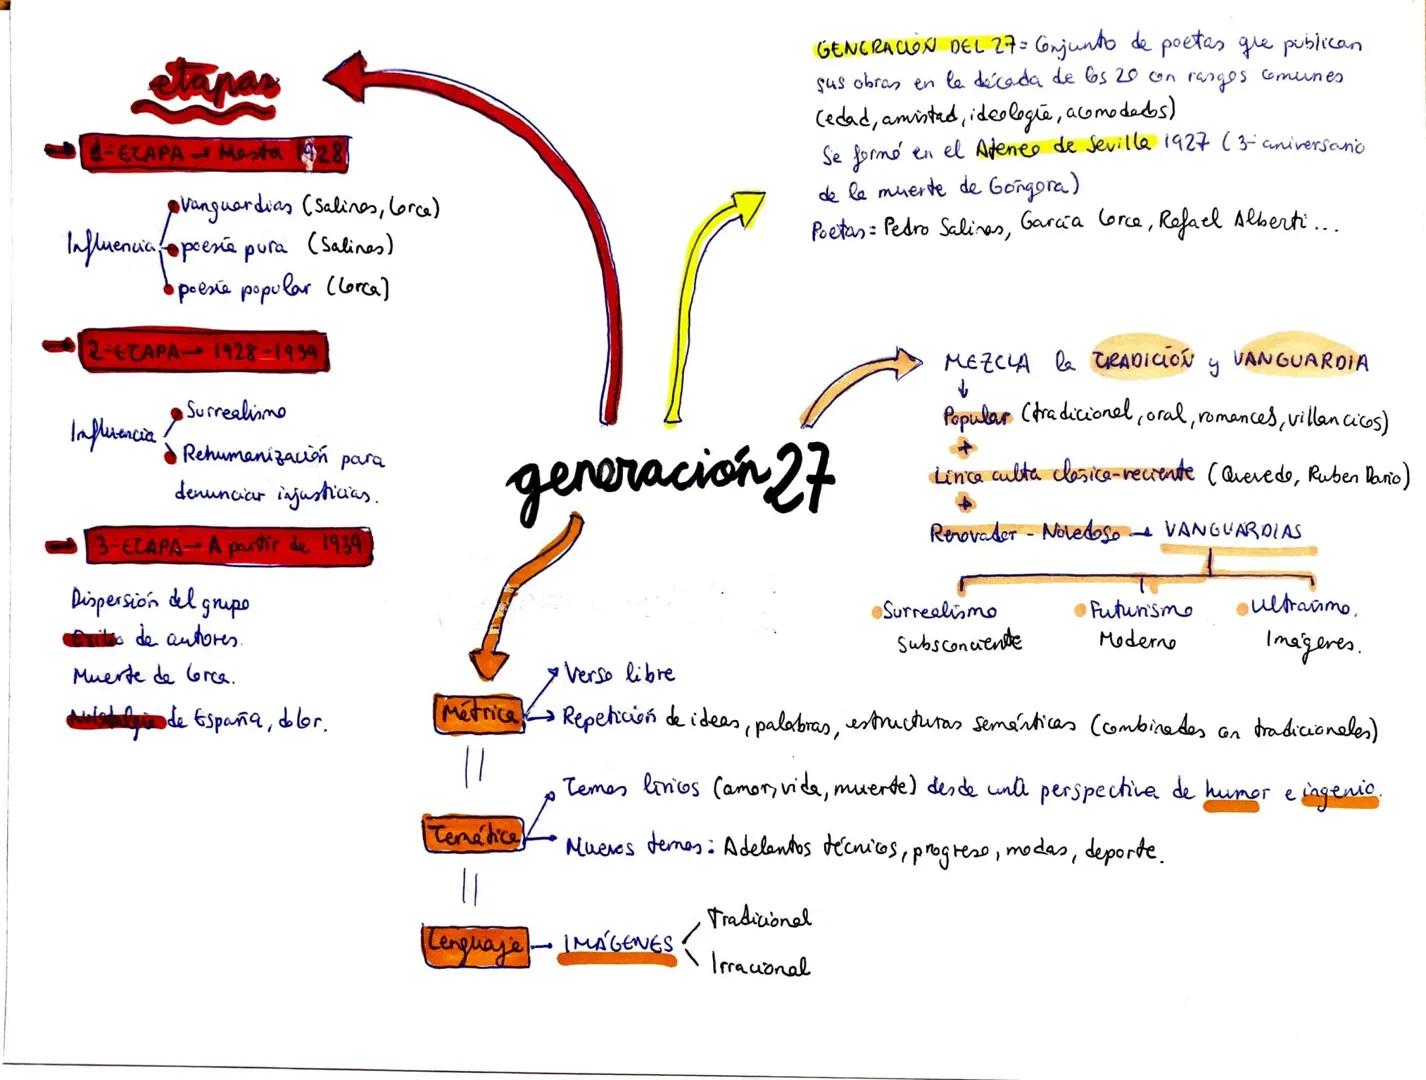 GENERACIÓN DEL 27= Conjunto de poetas que publican
sus obras en la década de los 20 con rasgos comunes
(edad, amistad, ideología, acomodados)
Se formó en el Ateneo de Sevilla 1927 (3- aniversario
de la muerte de Góngora)
Poetas= Pedro Salinas, García Lorca, Rafael Alberti...
etapas
1-ETAPA → Hasta 1928
Influencia
Vanguardias (Salinas, Lorca)
poesía pura (Salinas)
poesía popular (Lorca)
2-ETAPA → 1928-1939
Influencia
Surrealismo
Rehumanización para
denunciar injusticias.
3-ETAPA → A partir de 1939
Dispersión del grupo
Exilio de autores.
Muerte de Lorca.
Nostalgia de España, dolor.
generación 27
MEZCLA la TRADICIÓN y VANGUARDIA
↓
Popular (tradicional, oral, romances, villancicos)
+
Línea culta clásica-reciente (Quevedo, Ruben Dario)
+
Renovador - Novedoso → VANGUARDIAS
Surrealismo
Subsconciente
Futurismo
Moderno
Ultraísmo.
Imágenes.
Métrica
Verso libre
Repetición de ideas, palabras, estructuras semánticas (combinadas con tradicionales)
Temática
Temas líricos (amor, vida, muerte) desde una perspectiva de humor e ingenio.
Nuevos temas: Adelantos técnicos, progreso, modas, deporte.
Lenguaje → IMÁGENES
Tradicional
Irracional